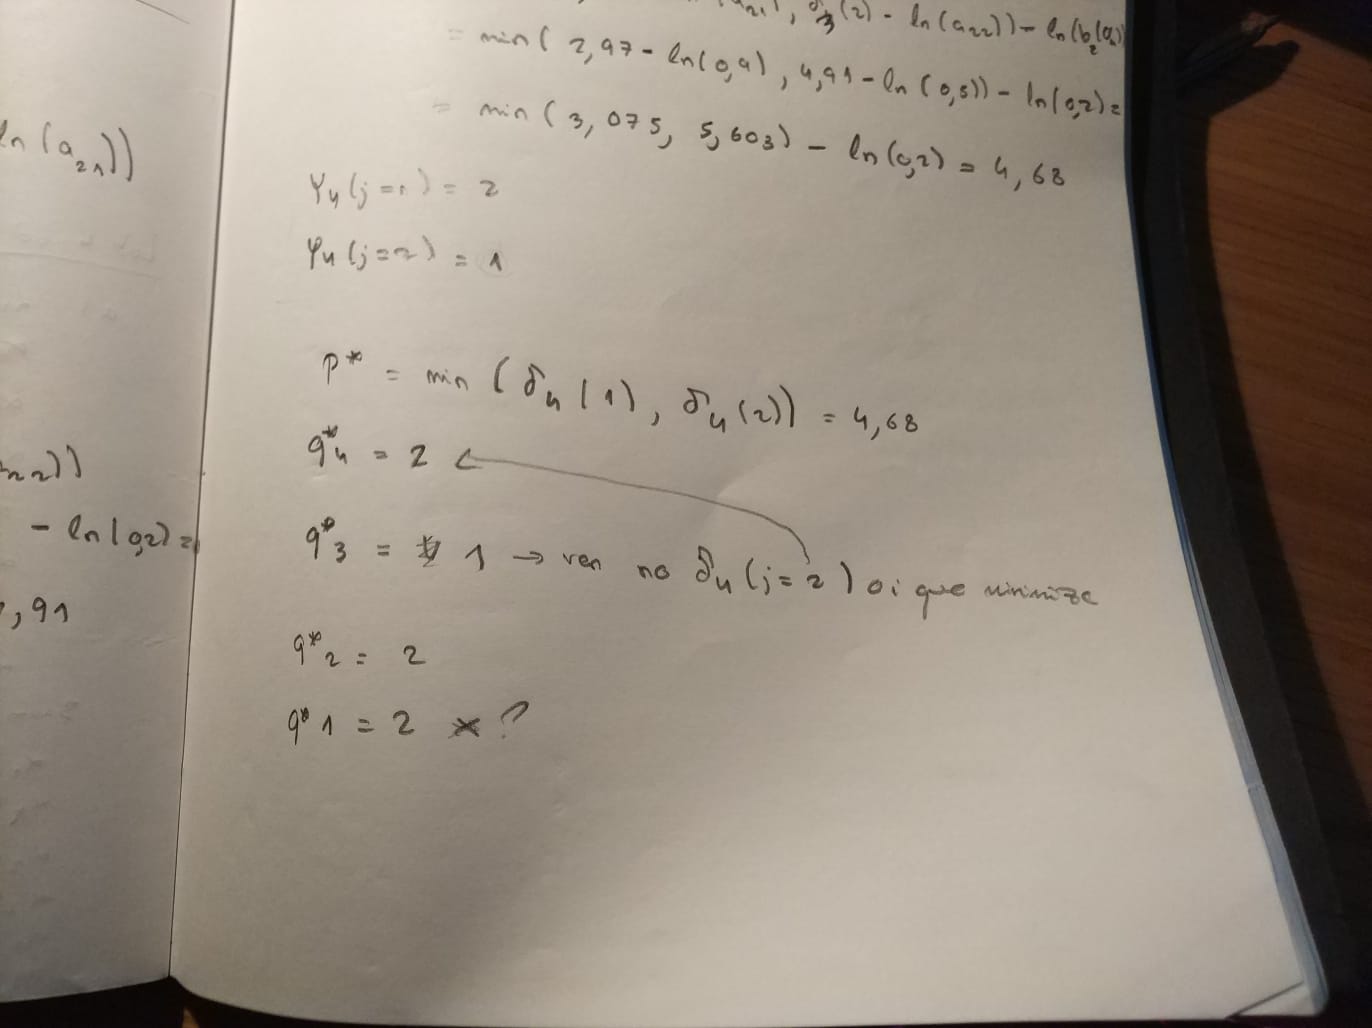 ln(a₂₁))
₂₂))
- ln(0,2) =
,91
a₂₁), δ₃(2) - ln(a₂₂)) - ln(b₂(
= min( 2,97 - ln(0,9) , 4,91 - ln(0,5)) - ln(0,2) =
= min( 3,075, 5,603) - ln(0,2) = 4,68
Ψ₄(j=1) = 2
Ψ₄(j=2) = 1
p* = min (δ₄(1), δ₄(2)) = 4,68
q*₄ = 2
q*₃ = 1 → ven no δ₄(j=2) oi que minimize
q*₂ = 2
q*1 = 2 * ?